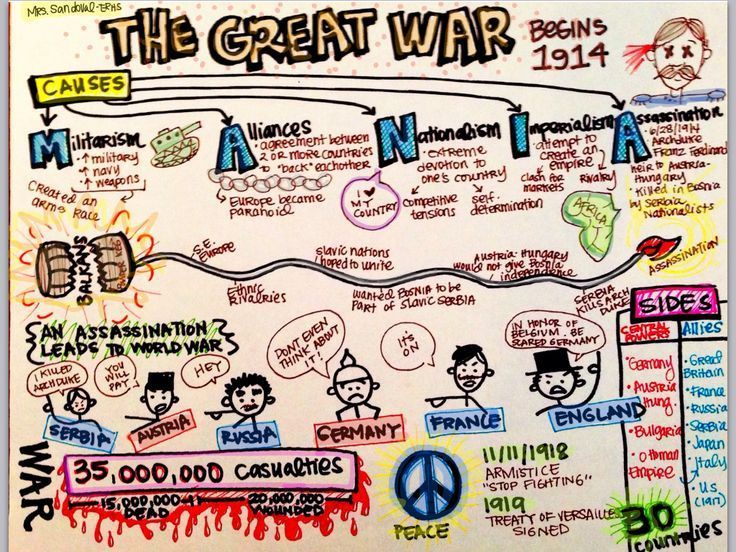 Mrs. Sandoval-ERHS
THE GREAT WAR
BEGINS
1914
CAUSES
Militarism
↑ military
↑ navy
↑ weapons
Created an
arms race
Alliances
• agreement between
2 or more countries
to "back" eachother
Europe became
paranoid
Nationalism
• extreme
devotion to
one's country
I ♥
MY
COUNTRY
competitive
tensions
self-
determination
Imperialism
• attempt to
create an
empire
clash for
markets
Rivalry
AFRICA
Assasination
• 6/28/1914
Archduke
Franz Ferdinand
heir to Austria-
Hungary
• Killed in Bosnia
by Serbia
Nationalists
BALKANS
POWDER KEG
S.E.
EUROPE
Ethnic
Rivalries
Slavic nations
hoped to unite
Wanted Bosnia to be
Part of Slavic Serbia
Austria-Hungary
would not give Bosnia
independence
SERBIA
KILLS ARCH
DUKE
ASSASSINATION
AN ASSASSINATION
LEADS TO WORLD WAR
I KILLED
ARCHDUKE
SERBIA
YOU
WILL
PAY
AUSTRIA
HEY
RUSSIA
DON'T EVEN
THINK ABOUT
IT!
GERMANY
IT'S
ON
FRANCE
IN HONOR OF
BELGIUM, BE
SCARED GERMANY
ENGLAND
SIDES
CENTRAL
POWERS
• Germany
• Austria
Hung.
• Bulgaria
• Ottoman
Empire
Allies
• Great
Britain
• France
• Russia
• Serbia
• Japan
• Italy
• U.S.
(1917)
30
countries
WAR
35,000,000 casualties
15,000,000
DEAD
20,000,000
WOUNDED
PEACE
11/11/1918
ARMISTICE
"STOP FIGHTING"
1919
TREATY OF VERSAILLE
SIGNED